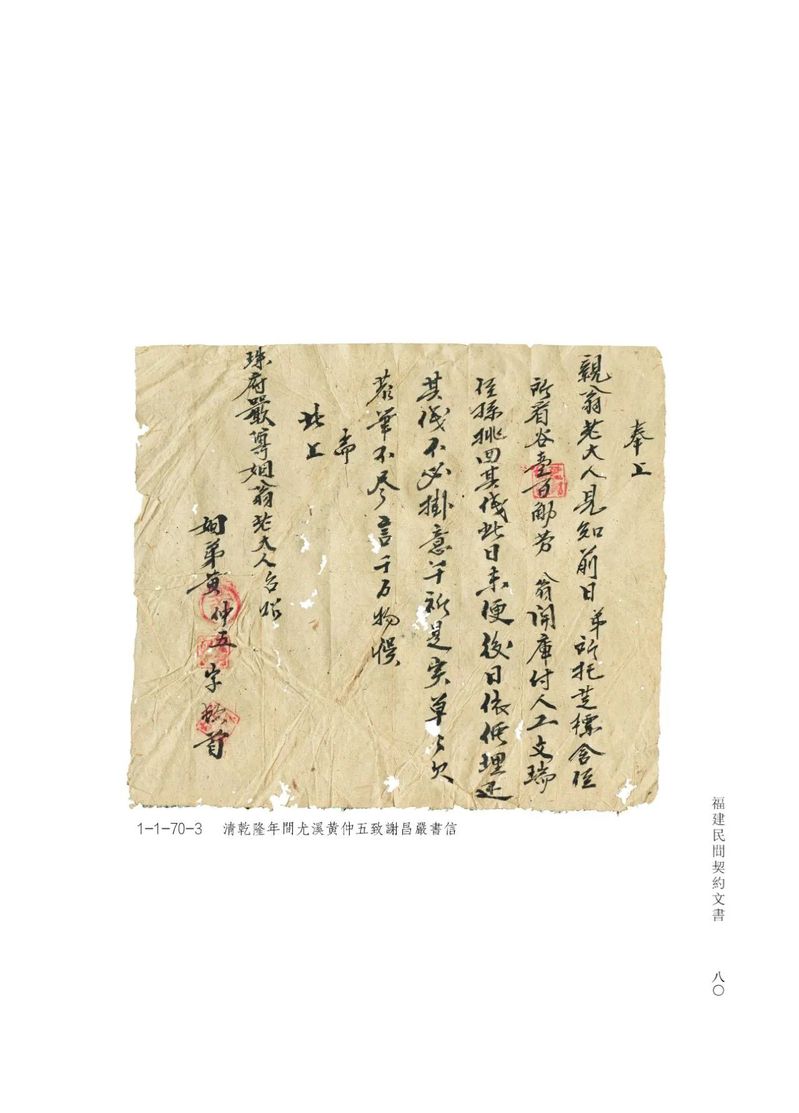 奉上
親翁老大人見知前日弟所托楚標舍侄
所看谷壹百觔労 翁開庫付人工文瑞
侄孫挑回其伐此日未便後日依低理还
其伐不必掛意千祈是实草々欠
恭筆不尽言千万勿悮
此上
珠府嚴尊姻翁老大人台炤
姻弟黄仲五字頓首
1-1-70-3 清乾隆年間尤溪黃仲五致謝昌嚴書信
福建民間契約文書
八〇